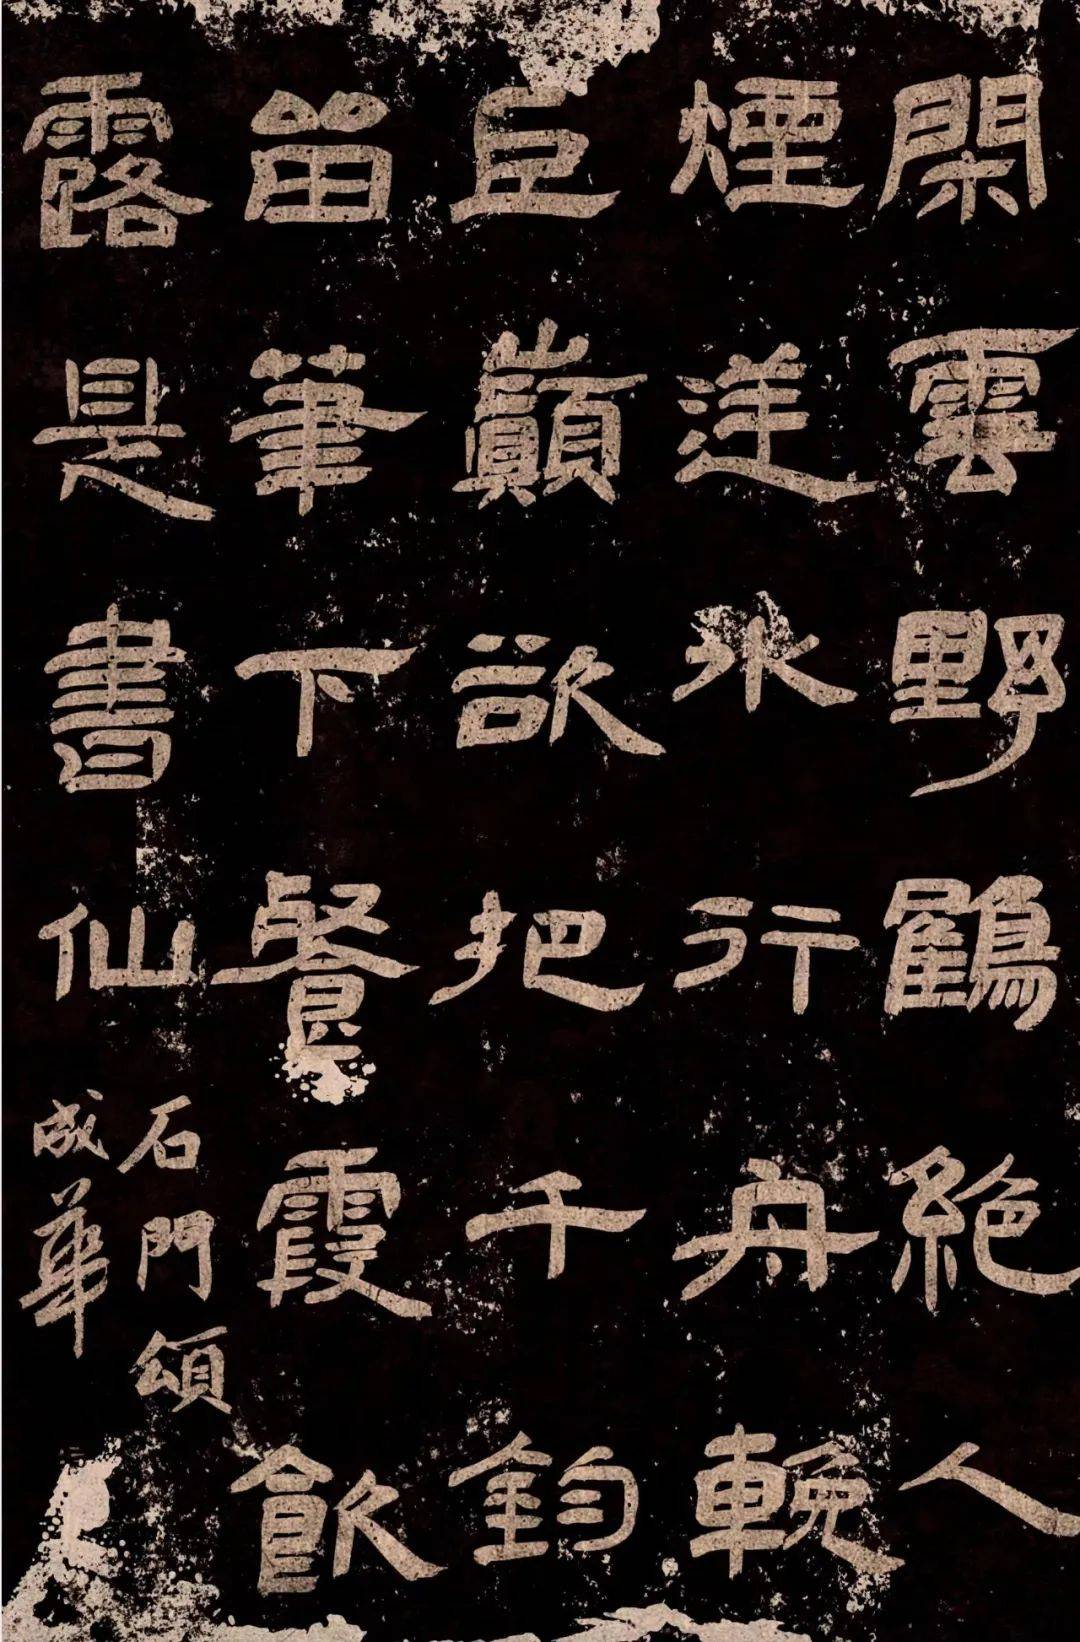 閑雲野鶴絕人
煙逆水行舟輓
巨巔欲把千鈞
留筆下餐霞飲
露是書仙
石門頌
成華